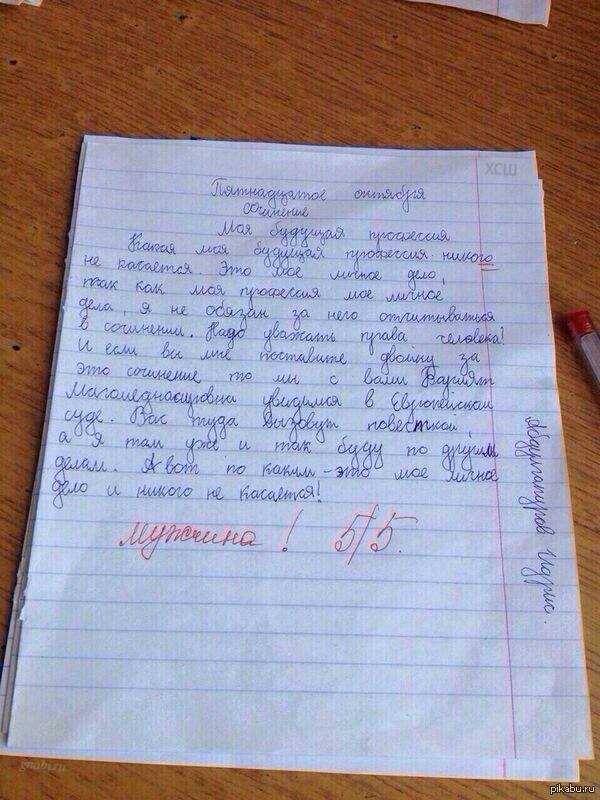 ХСШ
Пятнадцатое октября
Сочинение
Моя будущая профессия
Какая моя будущая профессия никого
не касается. Это мое личное дело,
так как моя профессия мое личное
дела, я не обязан за него отчитываться
в сочинении. Надо уважать права человека!
И если вы мне поставите двойку за
это сочинение то мы с вами Варият
Магомеднасировна увидимся в Европейском
суде. Вас туда вызовут повесткой,
а я там уже и так буду по другим
делам. А вот по каким - это мое личное
дело и никого не касается!
мужчина! 5/5.
Абдулгапуров Идрис.
pikabu.ru